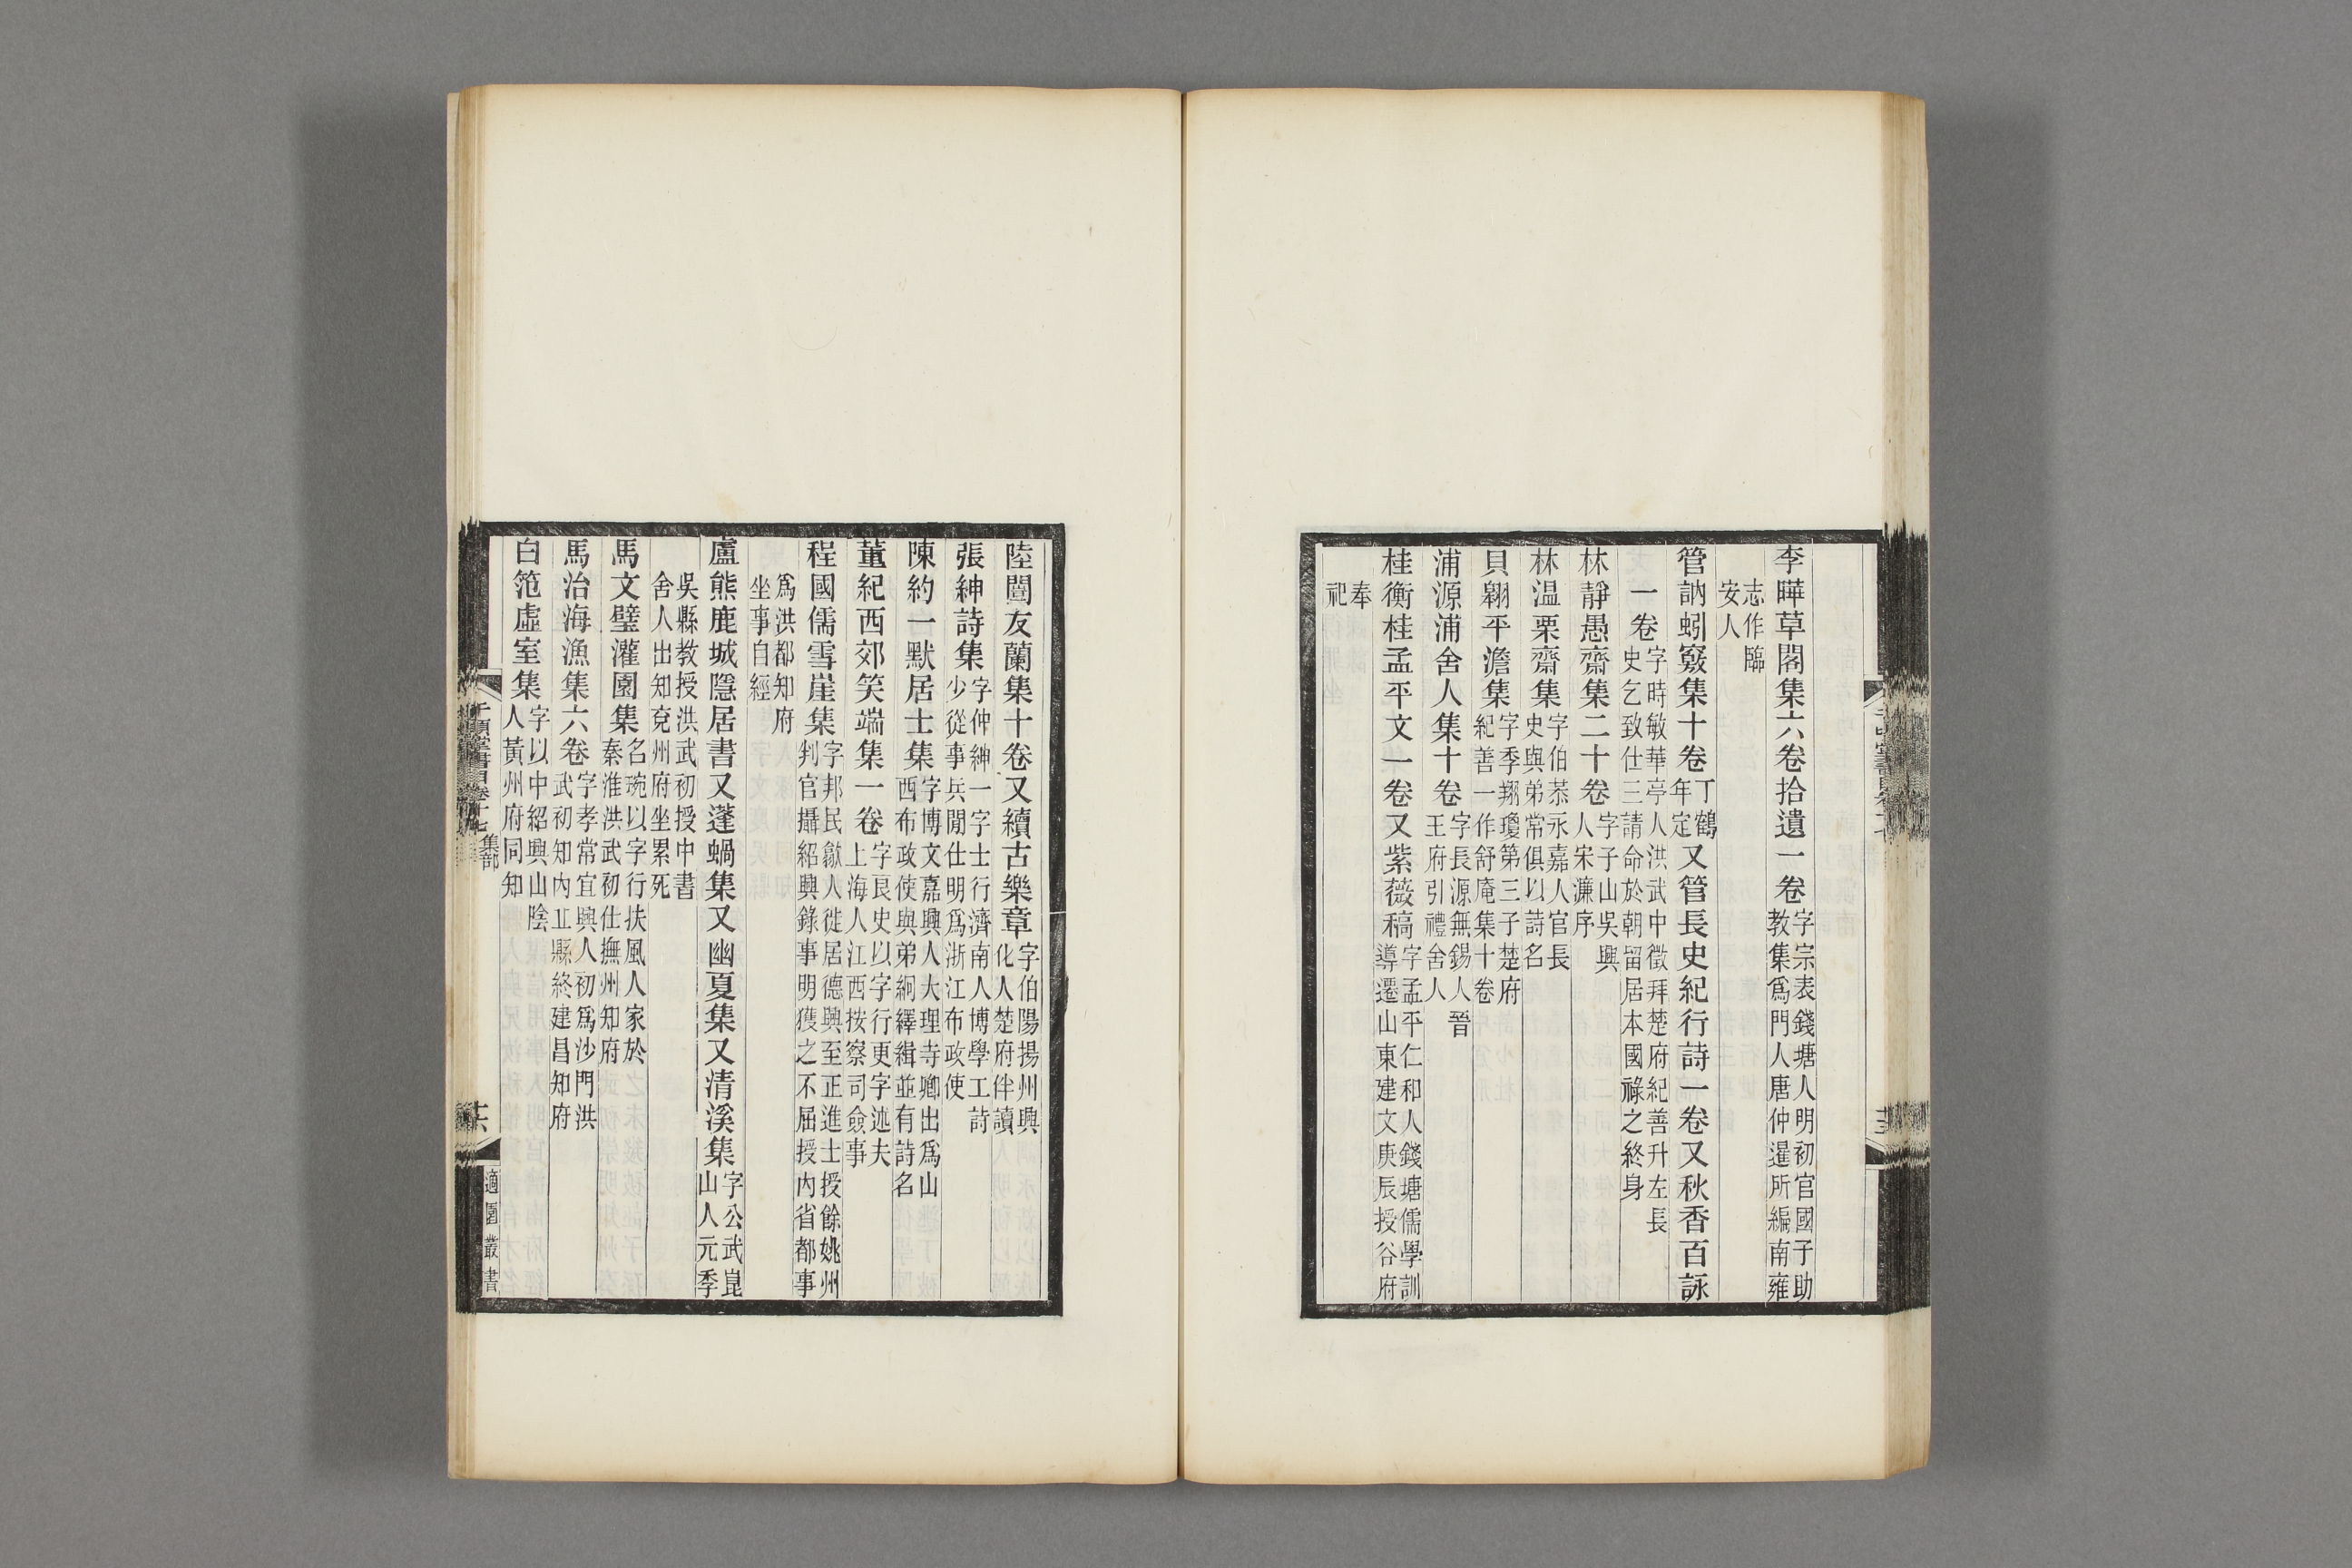 李曄草閣集六卷拾遺一卷字宗表錢塘人明初官國子助教集爲門人唐仲暹所編南雍
志作臨安人
管訥蚓竅集十卷丁鶴年定又管長史紀行詩一卷又秋香百詠
一卷字時敏華亭人洪武中徵拜楚府紀善升左長史乞致仕三請命於朝留居本國祿之終身
林靜愚齋集二十卷字子山吳興人宋濂序
林温栗齋集字伯恭永嘉人官長史與弟常俱以詩名
貝翱平澹集字季翔瓊第三子楚府紀善一作舒庵集十卷
浦源浦舍人集十卷字長源無錫人晉王府引禮舍人
桂衡桂孟平文一卷又紫薇稿字孟平仁和人錢塘儒學訓導遷山東建文庚辰授谷府
奉祀
陸闓友蘭集十卷又續古樂章字伯陽揚州興化人楚府伴讀
張紳詩集字仲紳一字士行濟南人博學工詩少從事兵閒仕明爲浙江布政使
陳約一默居士集字博文嘉興人大理寺卿出爲山西布政使與弟絅繹緝並有詩名
董紀西郊笑端集一卷字良史以字行更字述夫上海人江西按察司僉事
程國儒雪崖集字邦民歙人徙居德興至正進士授餘姚州判官攝紹興錄事明獲之不屈授內省都事
爲洪都知府坐事自經
盧熊鹿城隱居書又蓬蝸集又幽夏集又清溪集字公武崑山人元季
吳縣教授洪武初授中書舍人出知兗州府坐累死
馬文璧灌園集名琬以字行扶風人家於秦淮洪武初仕撫州知府
馬治海漁集六卷字孝常宜興人初爲沙門洪武初知內丘縣終建昌知府
白范虛室集字以中紹興山陰人黃州府同知
千頃堂書目卷十七 集部
十六
適園叢書